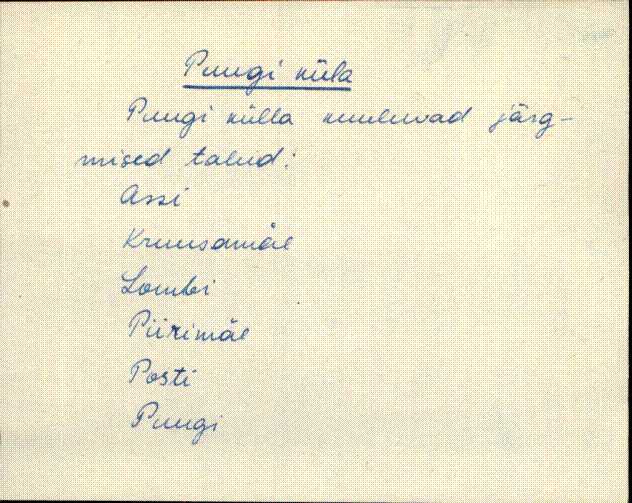 Puugi küla
Puugi külla kuuluvad järg-
mised talud:
Assi
Kruusamäe
Lombi
Piirimäe
Posti
Puugi